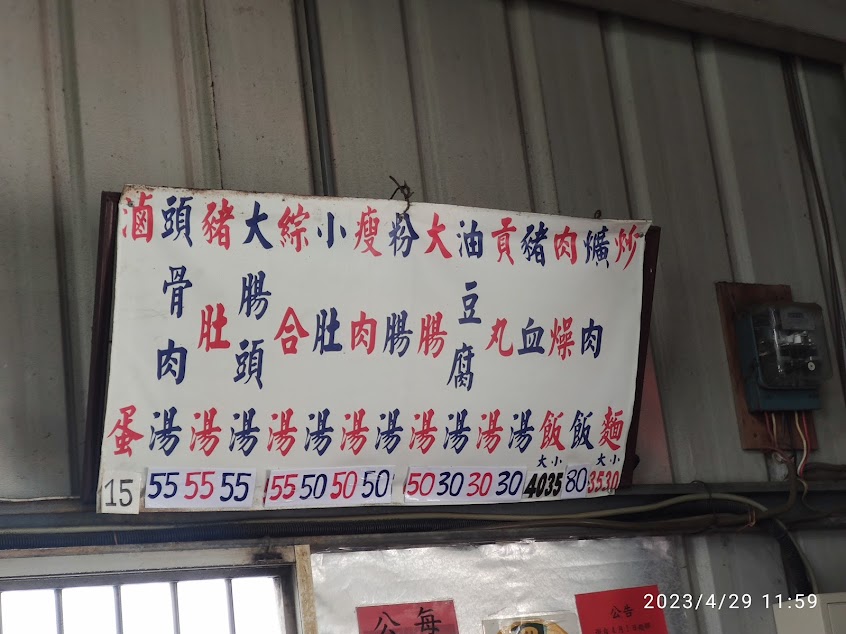 炒麵 大35 小30
爌肉飯 80
肉燥飯 大40 小35
豬血湯 30
貢丸湯 30
油豆腐湯 30
大腸湯 50
粉腸湯 50
瘦肉湯 50
小肚湯 50
綜合湯 55
大腸頭湯 55
豬肚湯 55
頭骨肉湯 55
滷蛋 15
公告
公每
2023/4/29 11:59